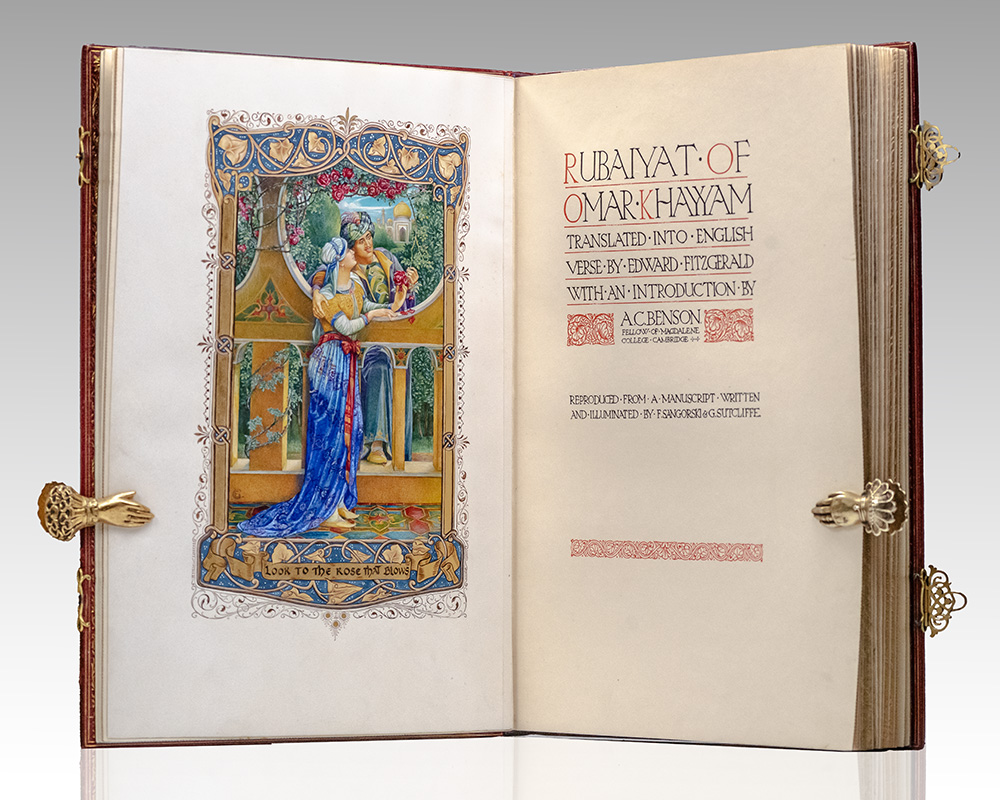 LOOK TO THE ROSE THAT BLOWS
RUBAIYAT·OF
OMAR·KHAYYAM
TRANSLATED·INTO·ENGLISH
VERSE·BY·EDWARD·FITZGERALD
WITH·AN·INTRODUCTION·BY
A.C.BENSON
FELLOW·OF·MAGDALENE
COLLEGE·CAMBRIDGE
REPRODUCED·FROM·A·MANUSCRIPT·WRITTEN
AND·ILLUMINATED·BY·F.SANGORSKI&G.SUTCLIFFE.